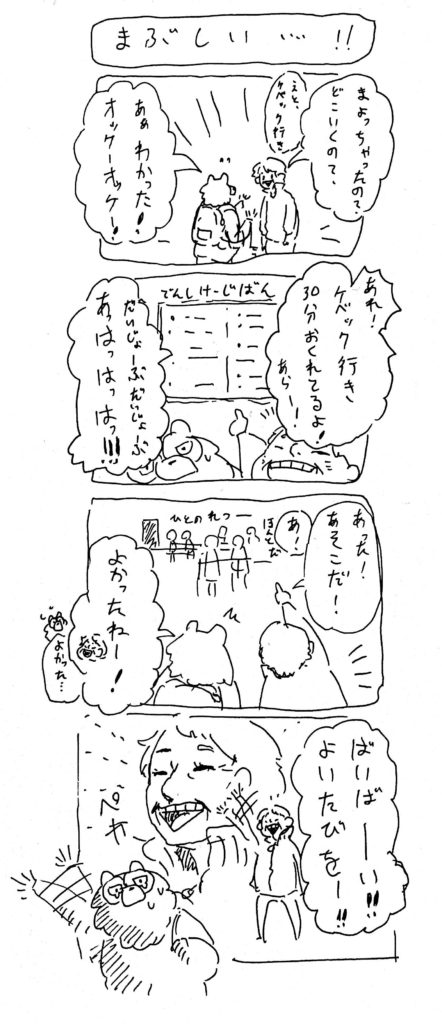 まぶしい…!!
まよっちゃったの?
どこいくの?
えと、
ケベック行き
あぁわかった!
オッケーオッケー!
あれ!
ケベック行き
30分おくれてるよ!
あらー!
でんしけーじばん
だいじょーぶだいじょーぶ
あっはっはっはっ!!!
あった!
あそこだ!
あ!
ほんとだ
ひとのれつー
よかったねー!
よかった…
ばいばーい!!
よいたびをー!!
ペカ